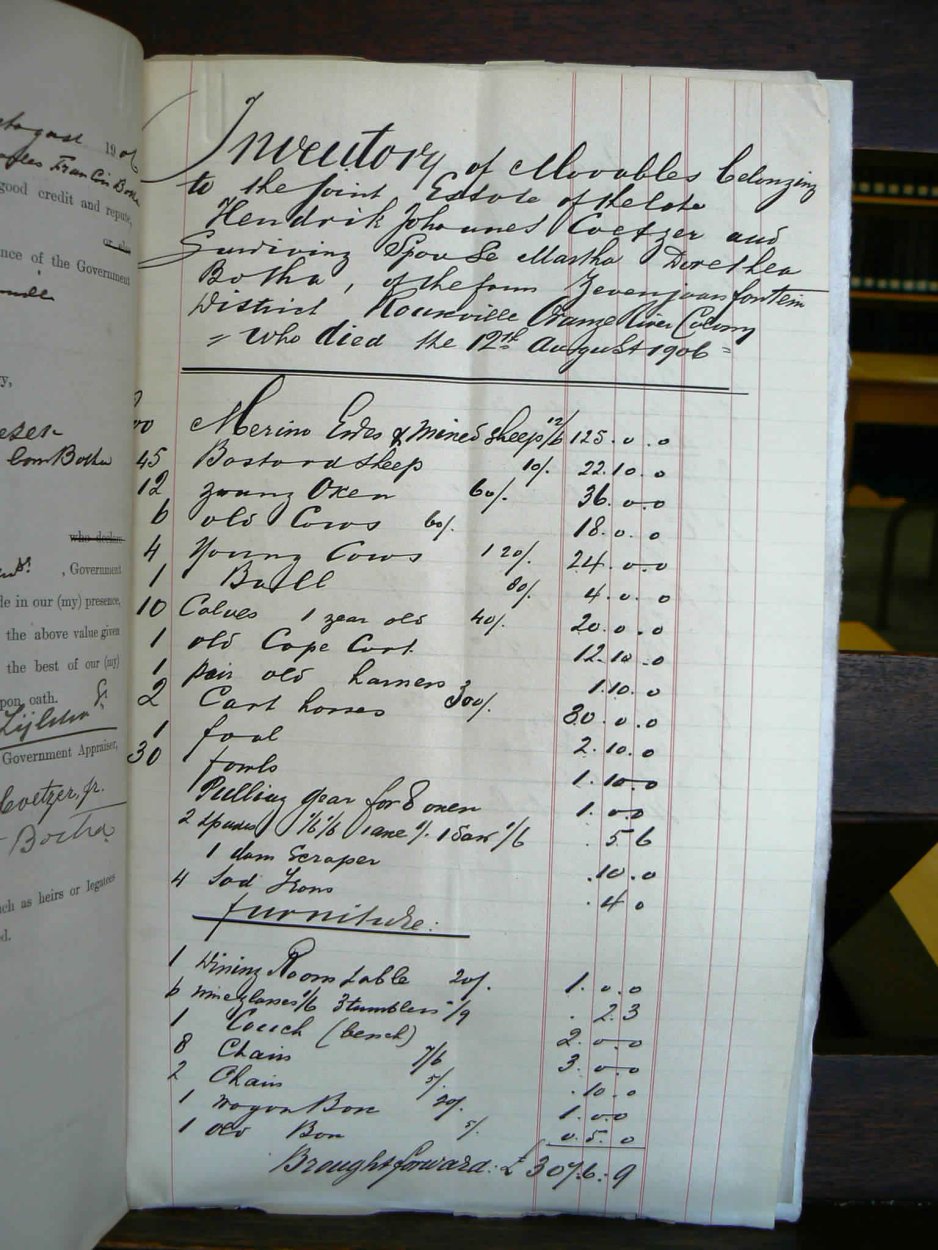 19 06
good credit and repute,
or also
nce of the Government
y,
Com Botha
who declare
, Government
de in our (my) presence,
the above value given
the best of our (my)
pon oath.
Government Appraiser,
Coetzer, jr.
Botha
uch as heirs or legatees
d.
Inventory of Movables belonging
to the Joint Estate of the late
Hendrik Johannes Coetzer and
Surviving Spouse Martha Dorethea
Botha, of the farm Zevenfontein
District Rouxville Orange River Colony
= who died the 12th August 1906 =
00 Merino Ewes & mixed sheep 12/6 125.0.0
45 Bastard sheep 10/. 22.10.0
12 young Oxen 60/. 36.0.0
6 old Cows 60/. 18.0.0
4 Young Cows 120/. 24.0.0
1 Bull 80/. 4.0.0
10 Calves 1 year old 40/. 20.0.0
1 old Cape Cart 12.10.0
1 pair old harness 1.10.0
2 Cart horses 300/. 30.0.0
1 foal 2.10.0
30 fowls 1.10.0
Pulling gear for 8 oxen 1.0.0
2 spades 1/6 1/6 1 axe 1/. 1 Saw 1/6 .5.6
1 dam Scraper .10.0
4 Sad Irons .4.0
furniture:
1 Dining Room table 20/. 1.0.0
6 wineglasses 1/6 3 tumblers /9 .2.3
1 Couch (bench) 2.0.0
8 Chairs 7/6 3.0.0
2 Chairs 5/. .10.0
1 Wagon Box 20/. 1.0.0
1 old Box 5/. 0.5.0
Brought forward: £307.6.9